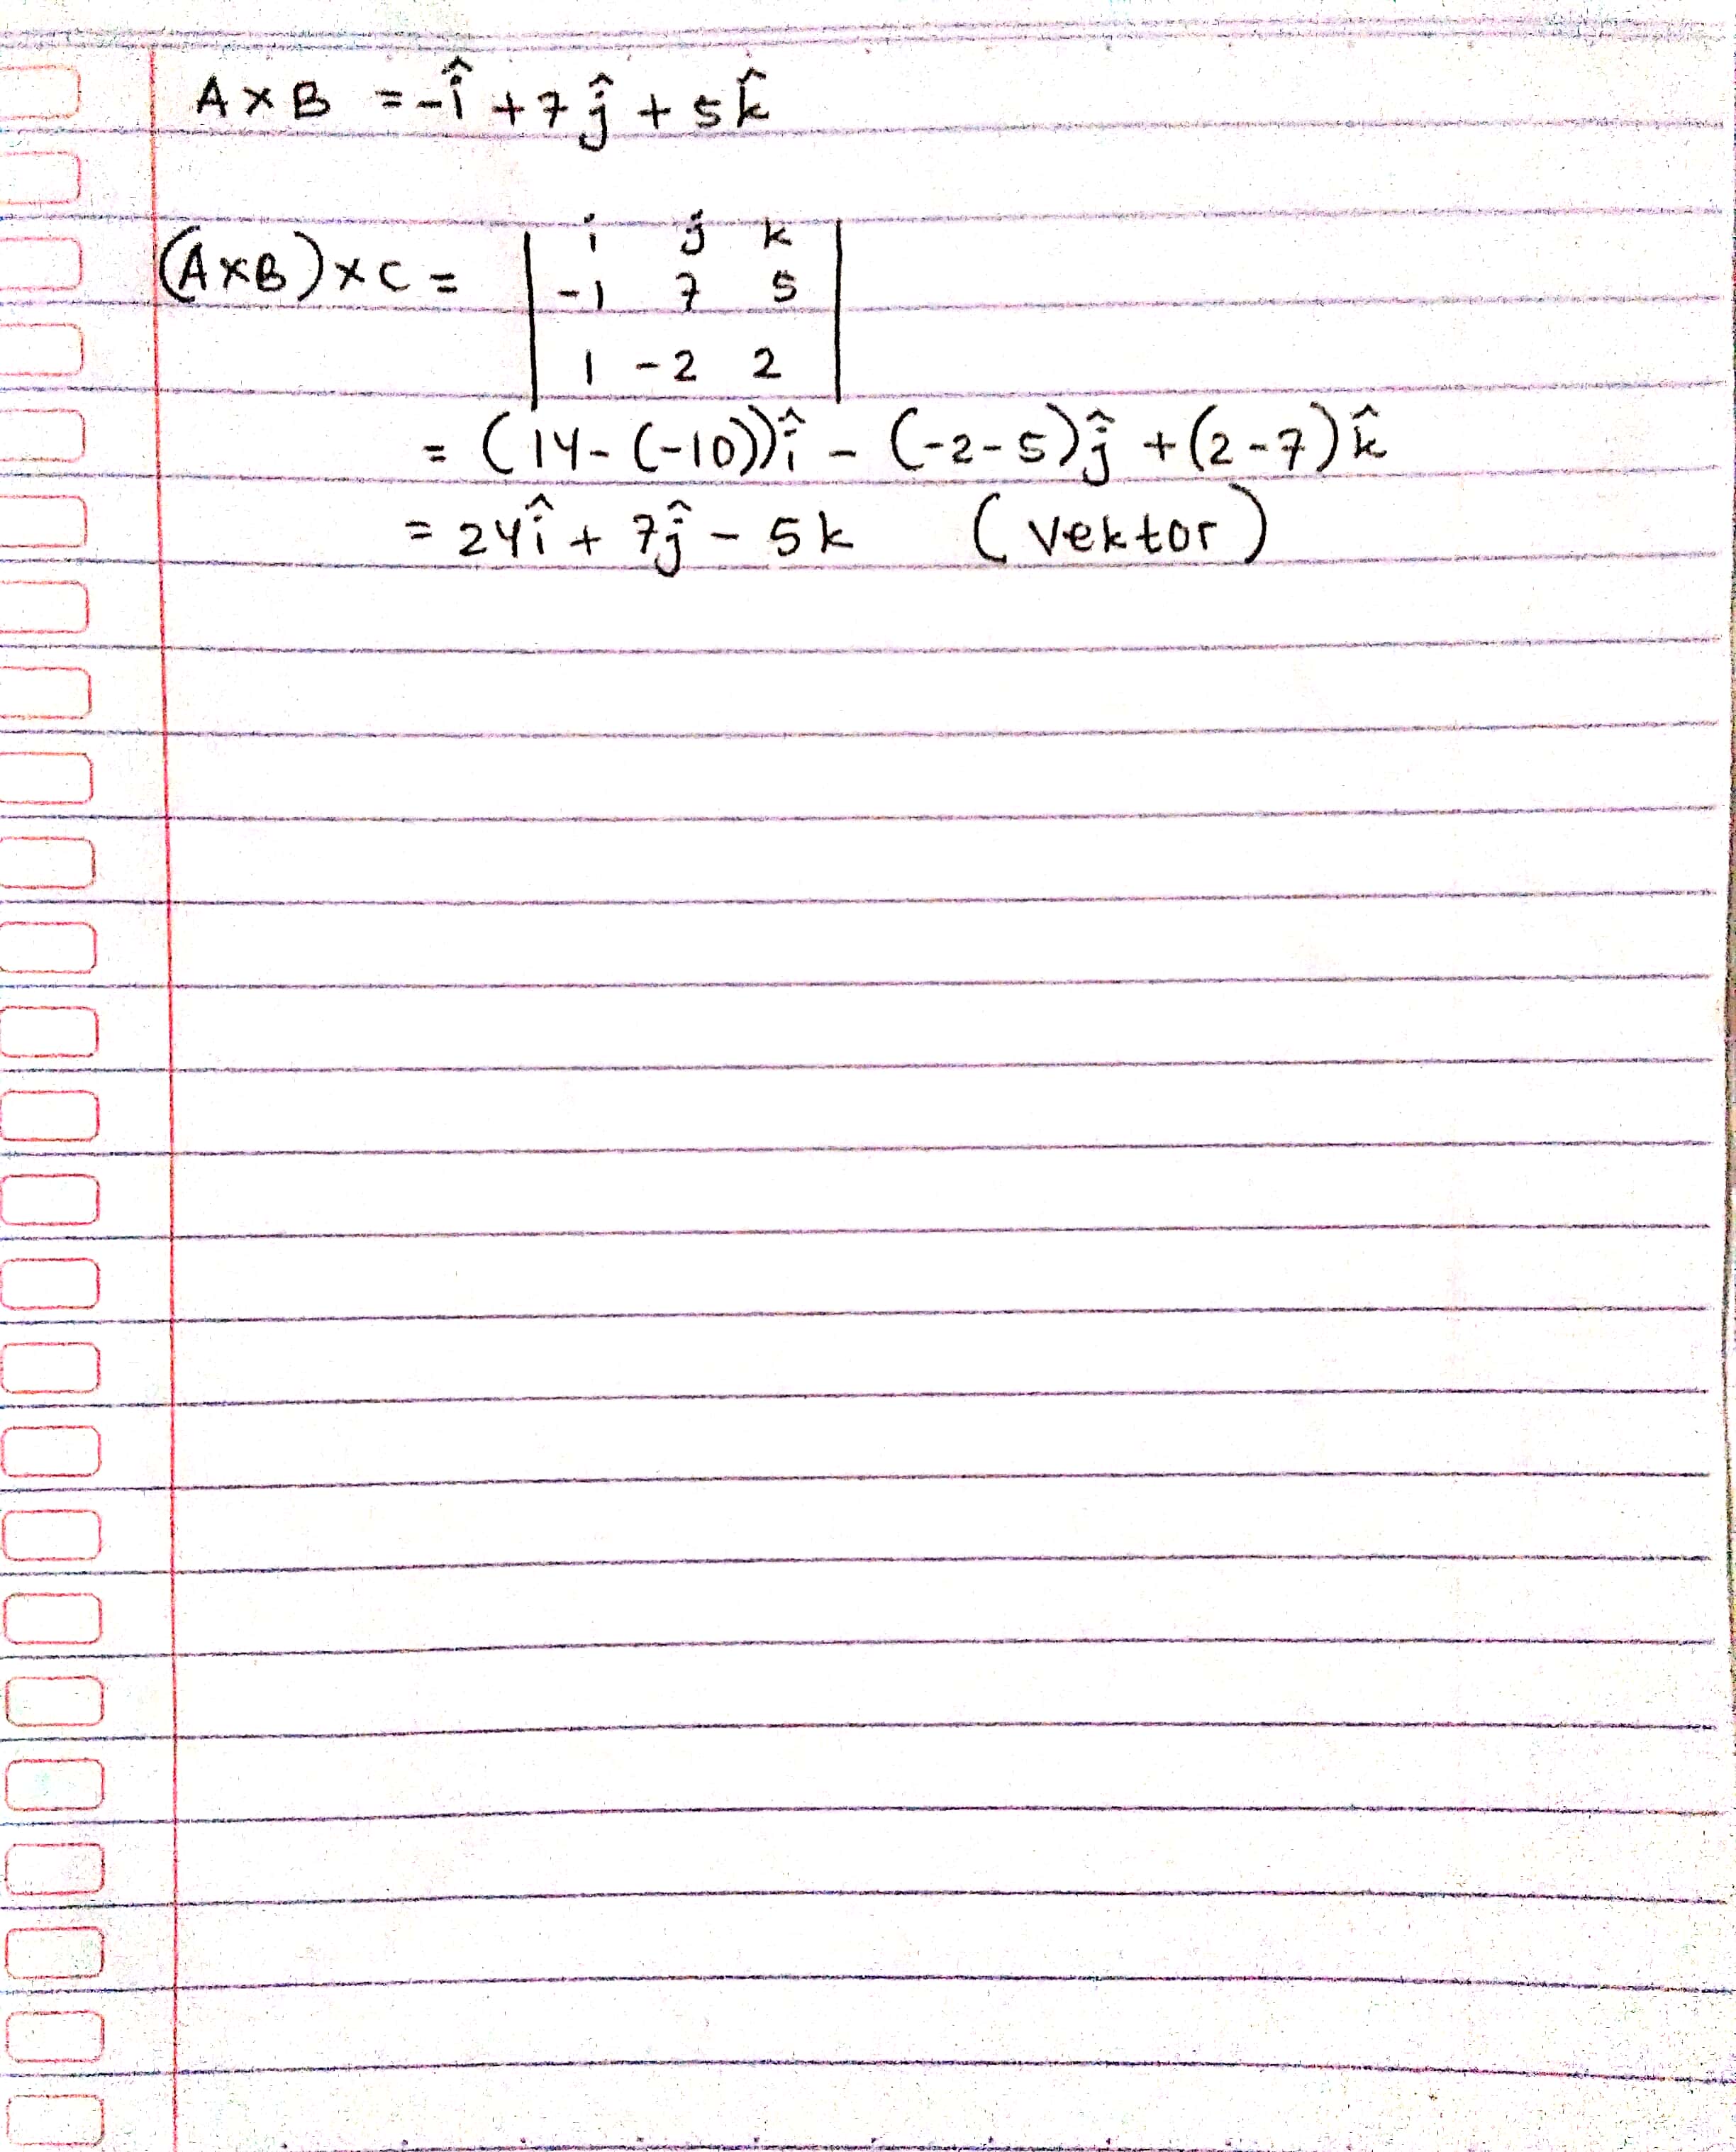 A × B = -î + 7ĵ + 5k̂
(A×B) × C = | i j k |
| -1 7 5 |
| 1 -2 2 |
= (14 - (-10))î - (-2-5)ĵ + (2-7)k̂
= 24î + 7ĵ - 5k (vektor)